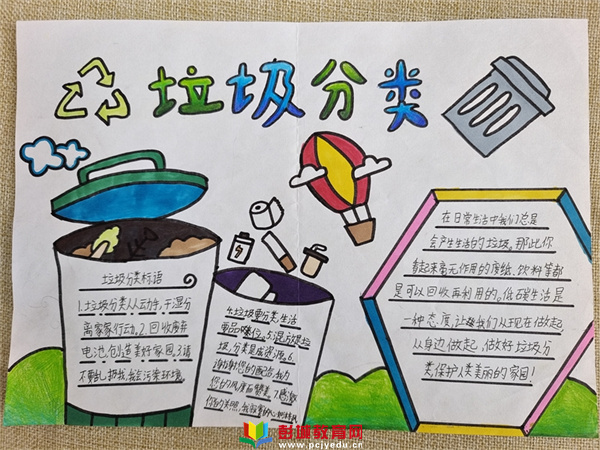 垃圾分类
垃圾分类标语
1.垃圾分类人人动手,干湿分
离家家行动。2.回收废弃
电池,创造美好家园。3.请
不要乱扔我,我会污染环境。
4.垃圾重分类,生活
垃,分类是成资源。6.
谢谢对您的配合,我为
您的风度而赞美。7.感激
在日常生活中我们总是
会产生生活的垃圾,那比你
看起来毫无作用的废纸、饮料等都
是可以回收再利用的。低碳生活是
一种态度,让我们从现在做起
从身边做起,做好垃圾分
类保护人类美丽的家园!
彭城教育网
www.pcjyedu.cn